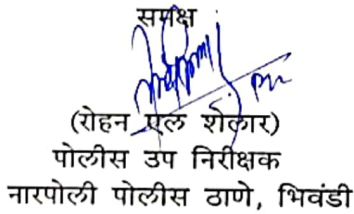 समक्ष
(रोहन एल शेलार)
पोलीस उप निरीक्षक
नारपोली पोलीस ठाणे, भिवंडी